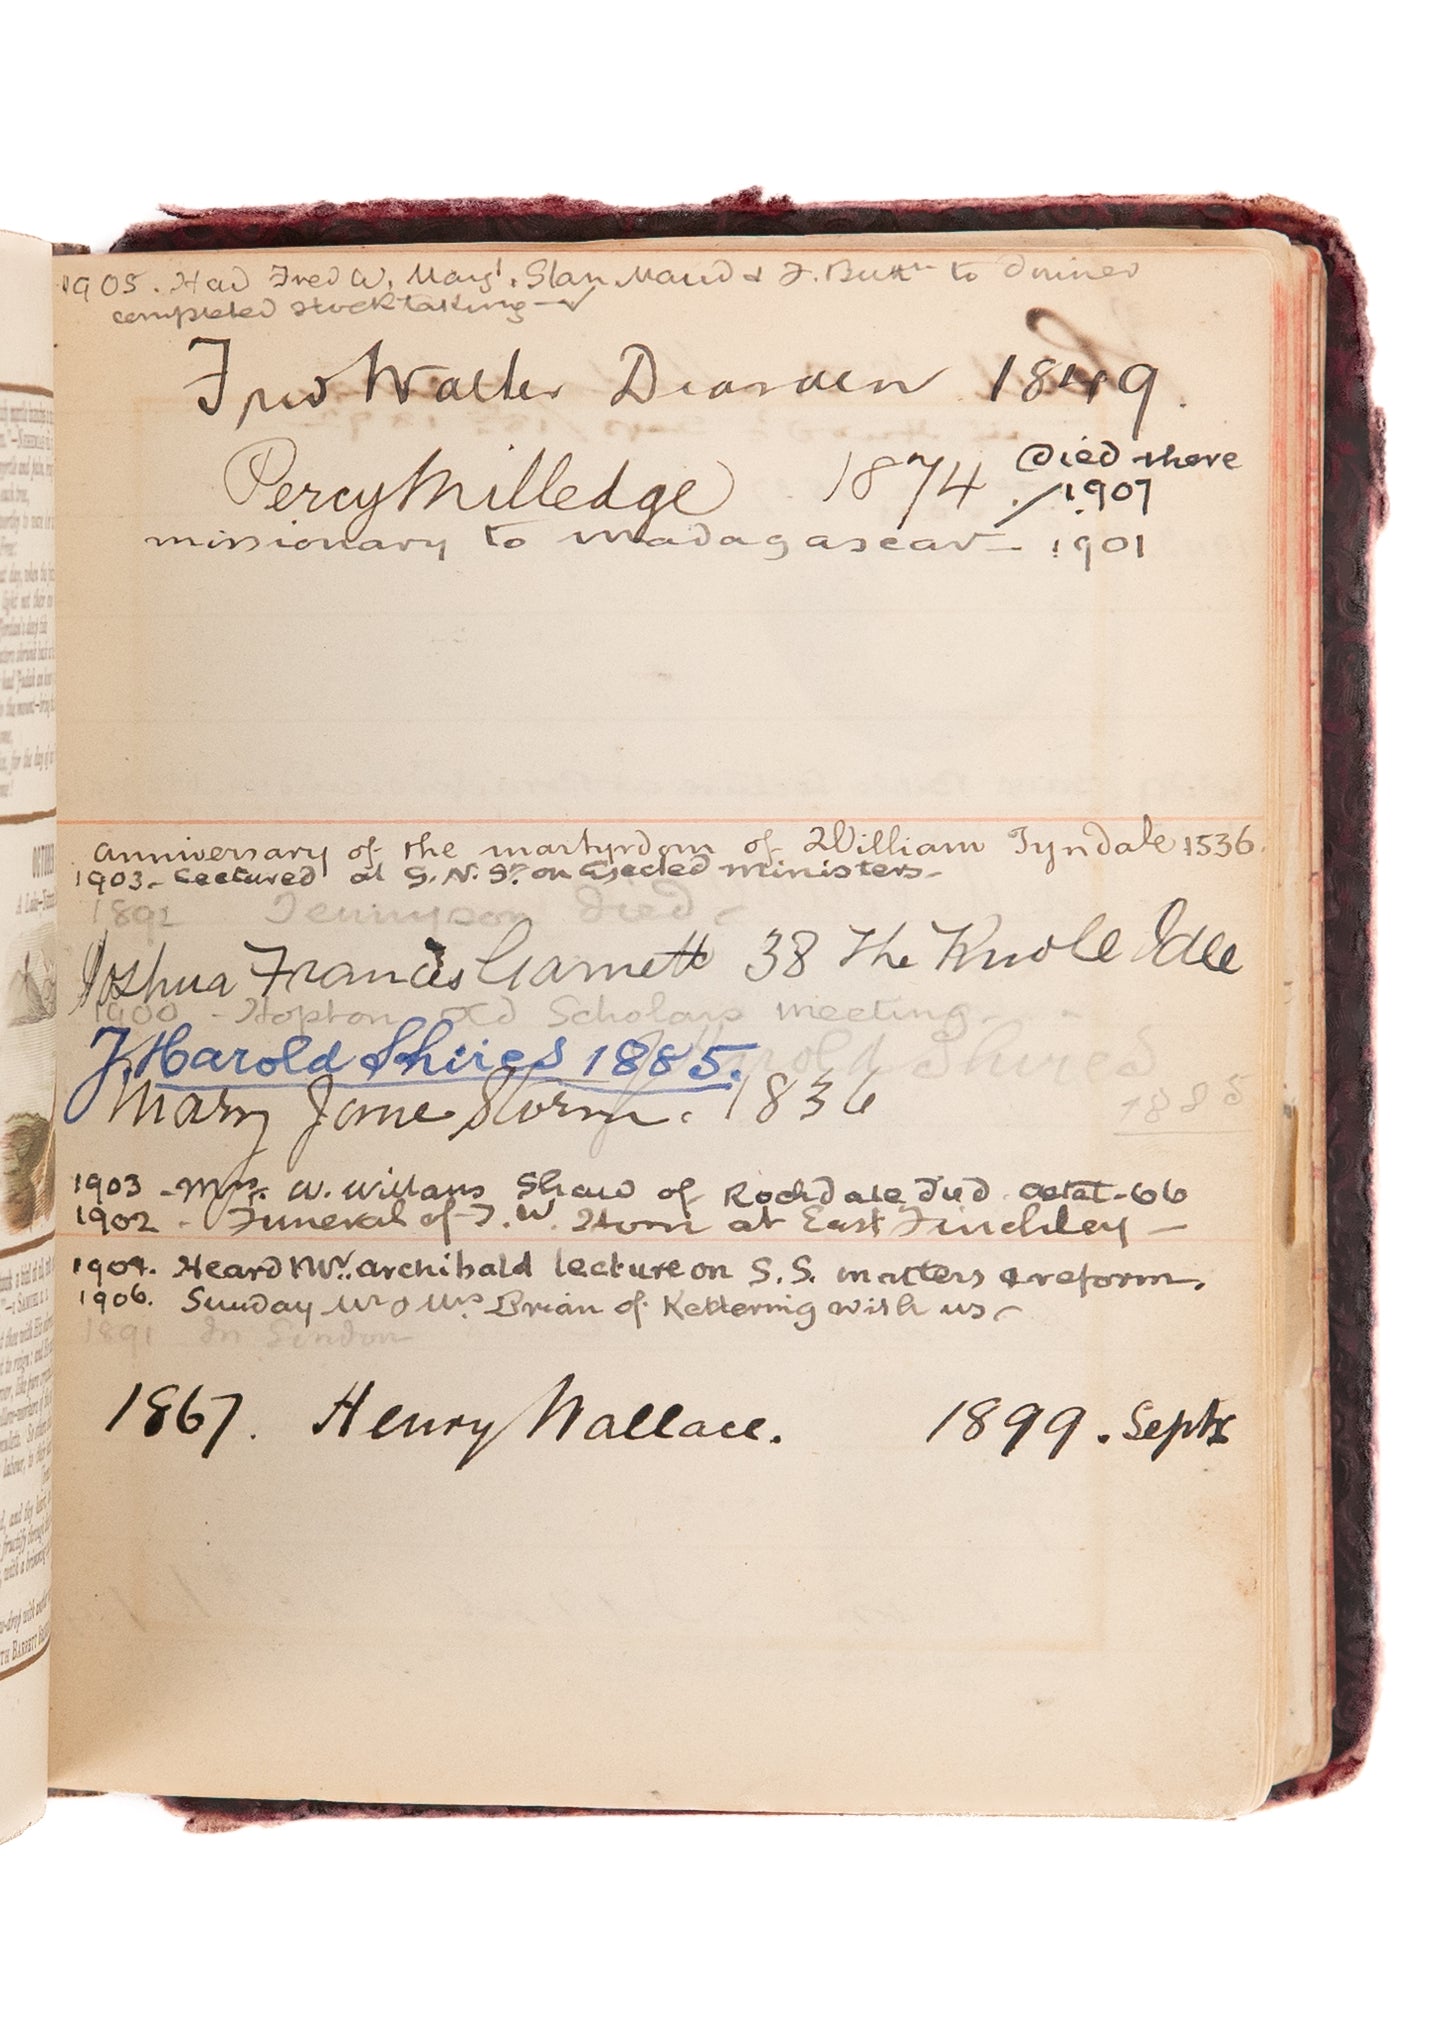 1905. Had Fred W, Marg't, Stan, Maud & F. to dinner
completed stocktaking
Fred Walter Dearden 1849.
Percy Milledge 1874 Died there
1907
missionary to Madagascar - 1901
Anniversary of the martyrdom of William Tyndale 1536.
1903 - Lectured at on Ejected ministers -
1892 Tennyson died -
Joshua Francis Garnett 38 The Knole Idle
1900 - Hopton Old Scholars meeting -
J Harold Shires 1885.
Harold Shires
1885
Mary Jane Storm. 1836
1903 - Mrs. W. Willans Shaw of Rochdale died aetat - 66
1902 - Funeral of T. W. Horn at East Finchley -
1904. Heard Mr. Archibald lecture on S.S. matters & reform.
1906. Sunday Mr & Mrs Brian of Kettering with us -
1891 In London
1867. Henry Wallace. 1899. Septr